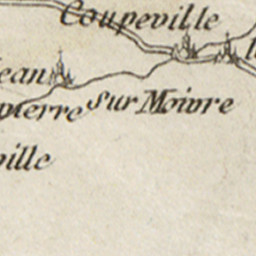 Coupeville
ean
pierre sur Moivre
ville